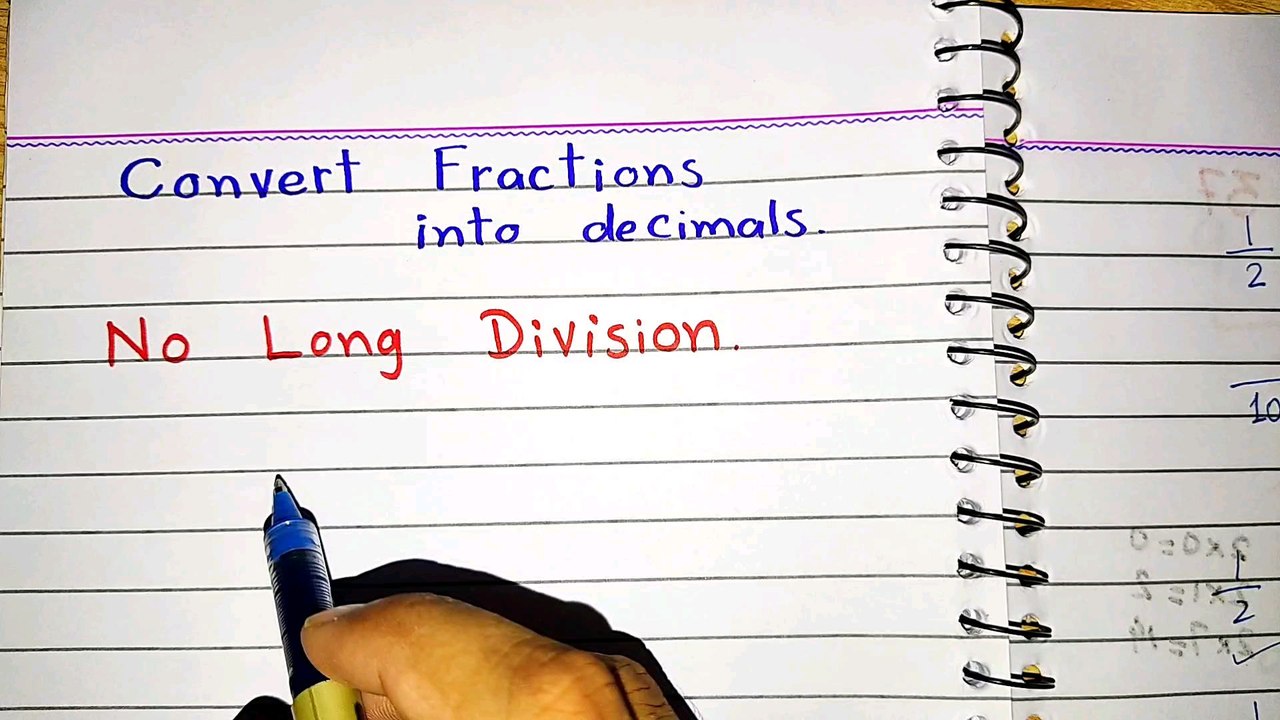 Convert Fractions
into decimals.
No Long Division.
1
2
10
1
2
1